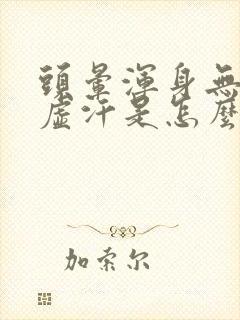 頭暈渾身無
虛汗是怎麼
加索尔